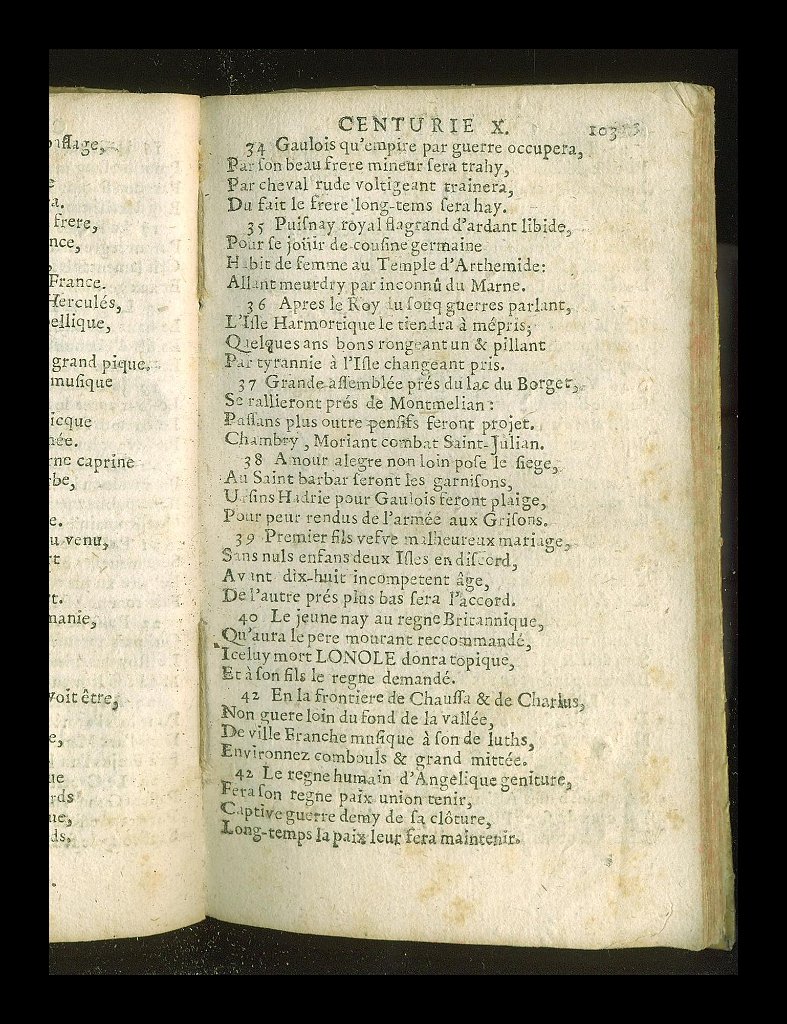 aſſage,
e
a.
frere,
nce,
France.
Herculés,
ellique,
grand pique,
muſique
icque
née.
rne caprine
be,
e.
u venu,
rt
t.
manie,
voit être,
e,
ue
rds
ue,
ds,
CENTURIE X. 103
34 Gaulois qu'empire par guerre occupera,
Par ſon beau frere mineur ſera trahy,
Par cheval rude voltigeant traînera,
Du fait le frere long-tems ſera hay.
35 Puiſnay royal flagrand d'ardant libide,
Pour ſe joüir de couſine germaine
Habit de femme au Temple d'Arthemide:
Allant meurdry par inconnû du Marne.
36 Apres le Roy du ſouq guerres parlant,
L'Iſle Harmortique le tiendra à mépris,
Quelques ans bons rongeant un & pillant
Par tyrannie à l'Iſle changeant pris.
37 Grande aſſemblée prés du lac du Borget,
Se rallieront prés de Montmelian:
Paſſans plus outre penſifs feront projet.
Chambry, Moriant combat Saint-Julian.
38 Amour alegre non loin poſe le ſiege,
Au Saint barbar ſeront les garniſons,
Urſins Hadrie pour Gaulois feront plaige,
Pour peur rendus de l'armée aux Griſons.
39 Premier fils veſve malheureux mariage,
Sans nuls enfans deux Iſles en diſcord,
Avant dix-huit incompetent âge,
De l'autre prés plus bas ſera l'accord.
40 Le jeune nay au regne Britannique,
Qu'aura le pere mourant reccommandé,
Iceluy mort LONOLE donra topique,
Et à ſon fils le regne demandé.
42 En la frontiere de Chauſſa & de Charlus,
Non guere loin du fond de la vallée,
De ville Franche muſique à ſon de luths,
Environnez combouls & grand mittée.
42 Le regne humain d'Angelique geniture,
Fera ſon regne paix union tenir,
Captive guerre demy de ſa clôture,
Long-temps la paix leur fera maintenir.